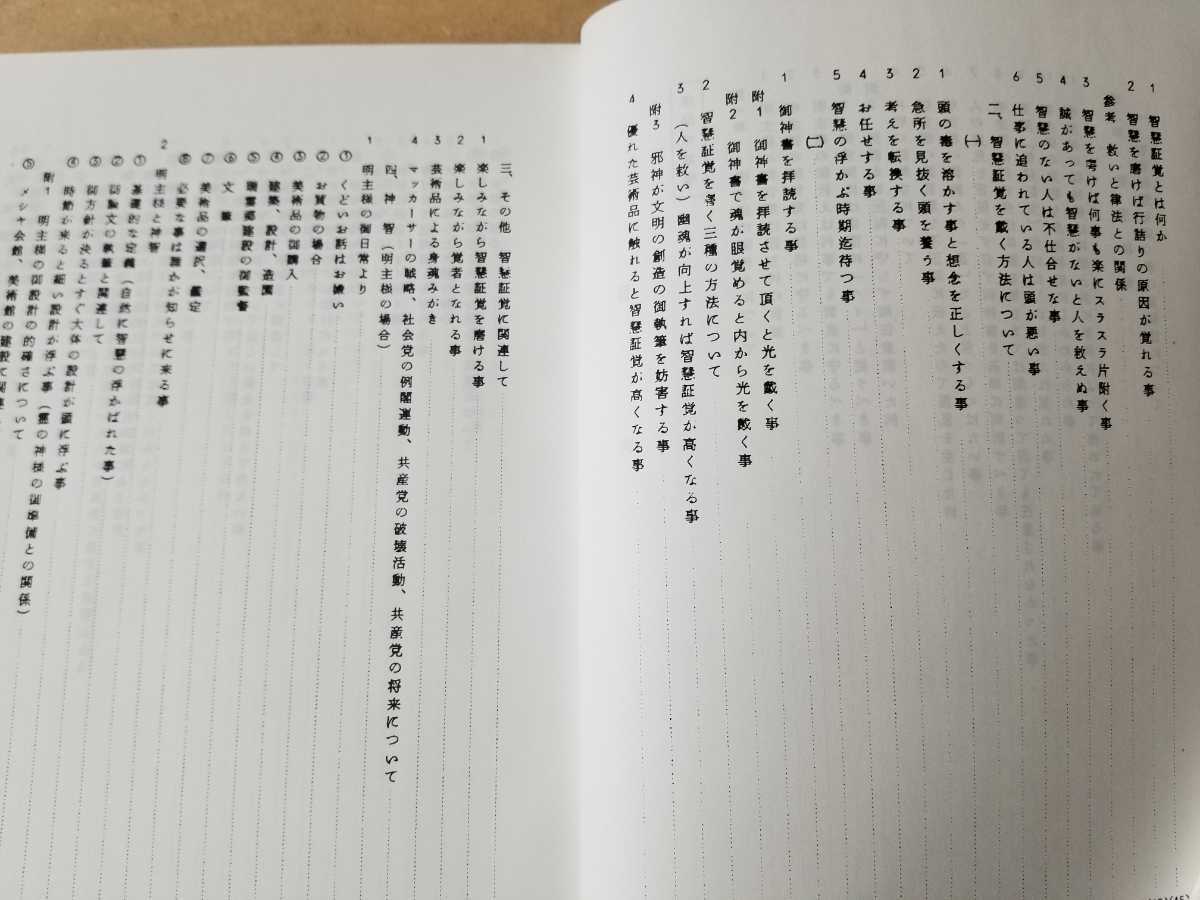 1 智慧証覚とは何か
2 智慧を磨けば行詰りの原因が覚れる事
参考 救いと律法との関係
3 智慧を磨けば何事も楽にスラスラ片附く事
4 誠があっても智慧がないと人を救えぬ事
5 智慧のない人は不仕合せな事
6 仕事に追われている人は頭が悪い事
二、智慧証覚を戴く方法について
(一)
1 頭の毒を溶かす事と想念を正しくする事
2 急所を見抜く頭を養う事
3 考えを転換する事
4 お任せする事
5 智慧の浮かぶ時期迄待つ事
(二)
1 御神書を拝読する事
附1 御神書を拝読させて頂くと光を戴く事
附2 御神書で魂が眼覚めると内から光を戴く事
2 智慧証覚を磨く三種の方法について
3 (人を救い)幽魂が向上すれば智慧証覚が高くなる事
附3 邪神が文明の創造の御執筆を妨害する事
4 優れた芸術品に触れると智慧証覚が高くなる事
三、その他 智慧証覚に関連して
1 楽しみながら智慧証覚を磨ける事
2 楽しみながら覚者となれる事
3 芸術品による身魂みがき
4 マッカーサーの戦略、社会党の倒閣運動、共産党の破壊活動、共産党の将来について
四、神 智(明主様の場合)
1 明主様の御日常より
① くどいお話はお嫌い
② お買物の場合
③ 美術品の御購入
④ 建築、設計、造園
⑤ 瑞雲郷建設の御監督
⑥ 文 筆
⑦ 美術品の選択、鑑定
⑧ 必要な事は誰かが知らせに来る事
2 明主様と神智
① 基礎的な定義(自然に智慧の浮かばれた事)
② 御論文の執筆と関連して
③ 御方針が決るとすぐ大体の設計が頭に浮ぶ事
④ 時節が来ると細い設計が浮ぶ事(霊の神様の御準備との関係)
附1 明主様の御設計の的確さについて
⑤ メシヤ会館、美術館の建設に関連